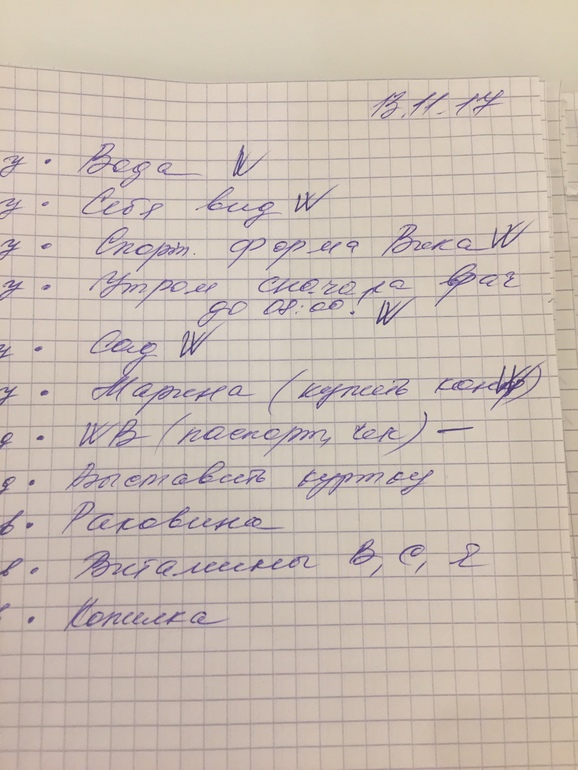 13.11.17
у • Вода W
у • Себя вид W
у • Спорт. форма Вика W
у • Утром сначала врач
до 08:00. W
у • Сад W
у • Марина (купить W)
д • WB (паспорт, чек) —
д • Выставить куртку
в • Раковина
в • Витамины B, C,
в • Копилка